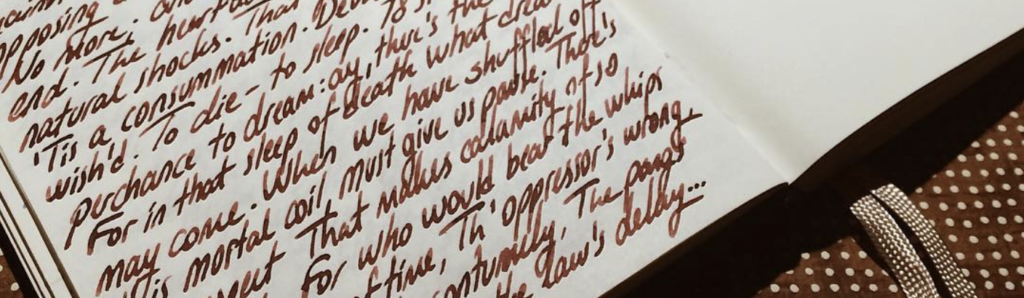 opposing
No more; The heart
end. The heart
natural shocks. That
'Tis a consummation. Dev
wish'd. To die – to sleep. To s
perchance to dream: ay, there's the
For in that sleep of death what drea
may come. When we have shuffled off
this mortal coil, must give us pause. There's
That makes calamity of so
For who would bear the whips
of time, Th' oppressor's wrong,
contumely, The pangs
the law's delay...